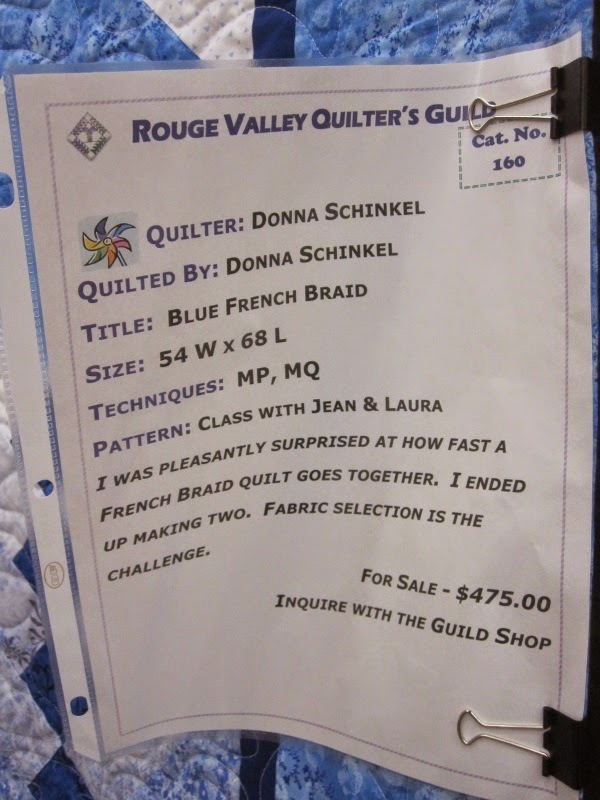 ROUGE VALLEY QUILTER'S GUILD
Cat. No.
160
QUILTER: DONNA SCHINKEL
QUILTED BY: DONNA SCHINKEL
TITLE: BLUE FRENCH BRAID
SIZE: 54 W X 68 L
TECHNIQUES: MP, MQ
PATTERN: CLASS WITH JEAN & LAURA
I WAS PLEASANTLY SURPRISED AT HOW FAST A
FRENCH BRAID QUILT GOES TOGETHER. I ENDED
UP MAKING TWO. FABRIC SELECTION IS THE
CHALLENGE.
FOR SALE - $475.00
INQUIRE WITH THE GUILD SHOP